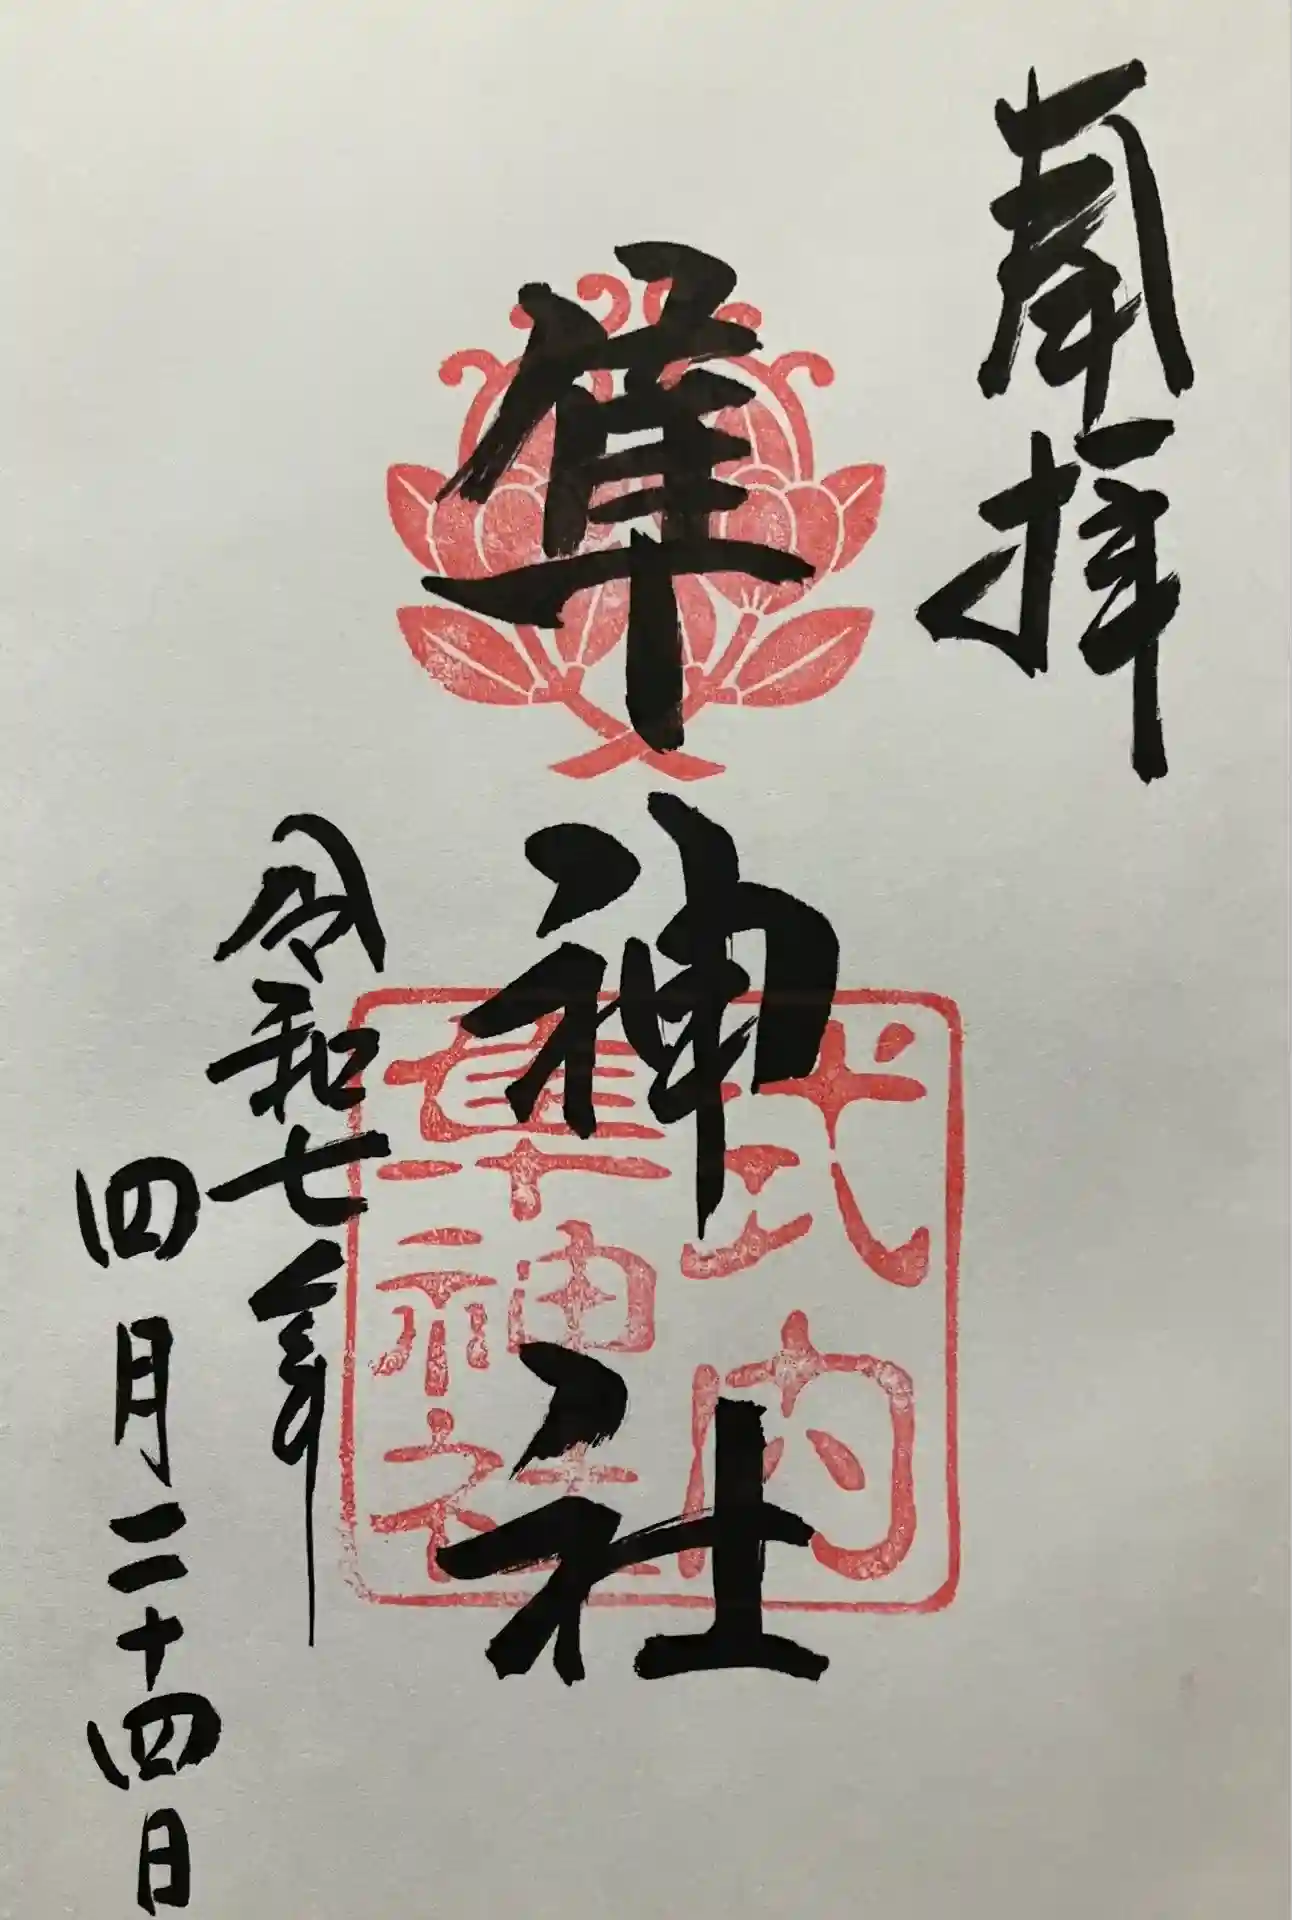 奉拝
隼神社
式内
隼神社
令和七年
四月二十四日